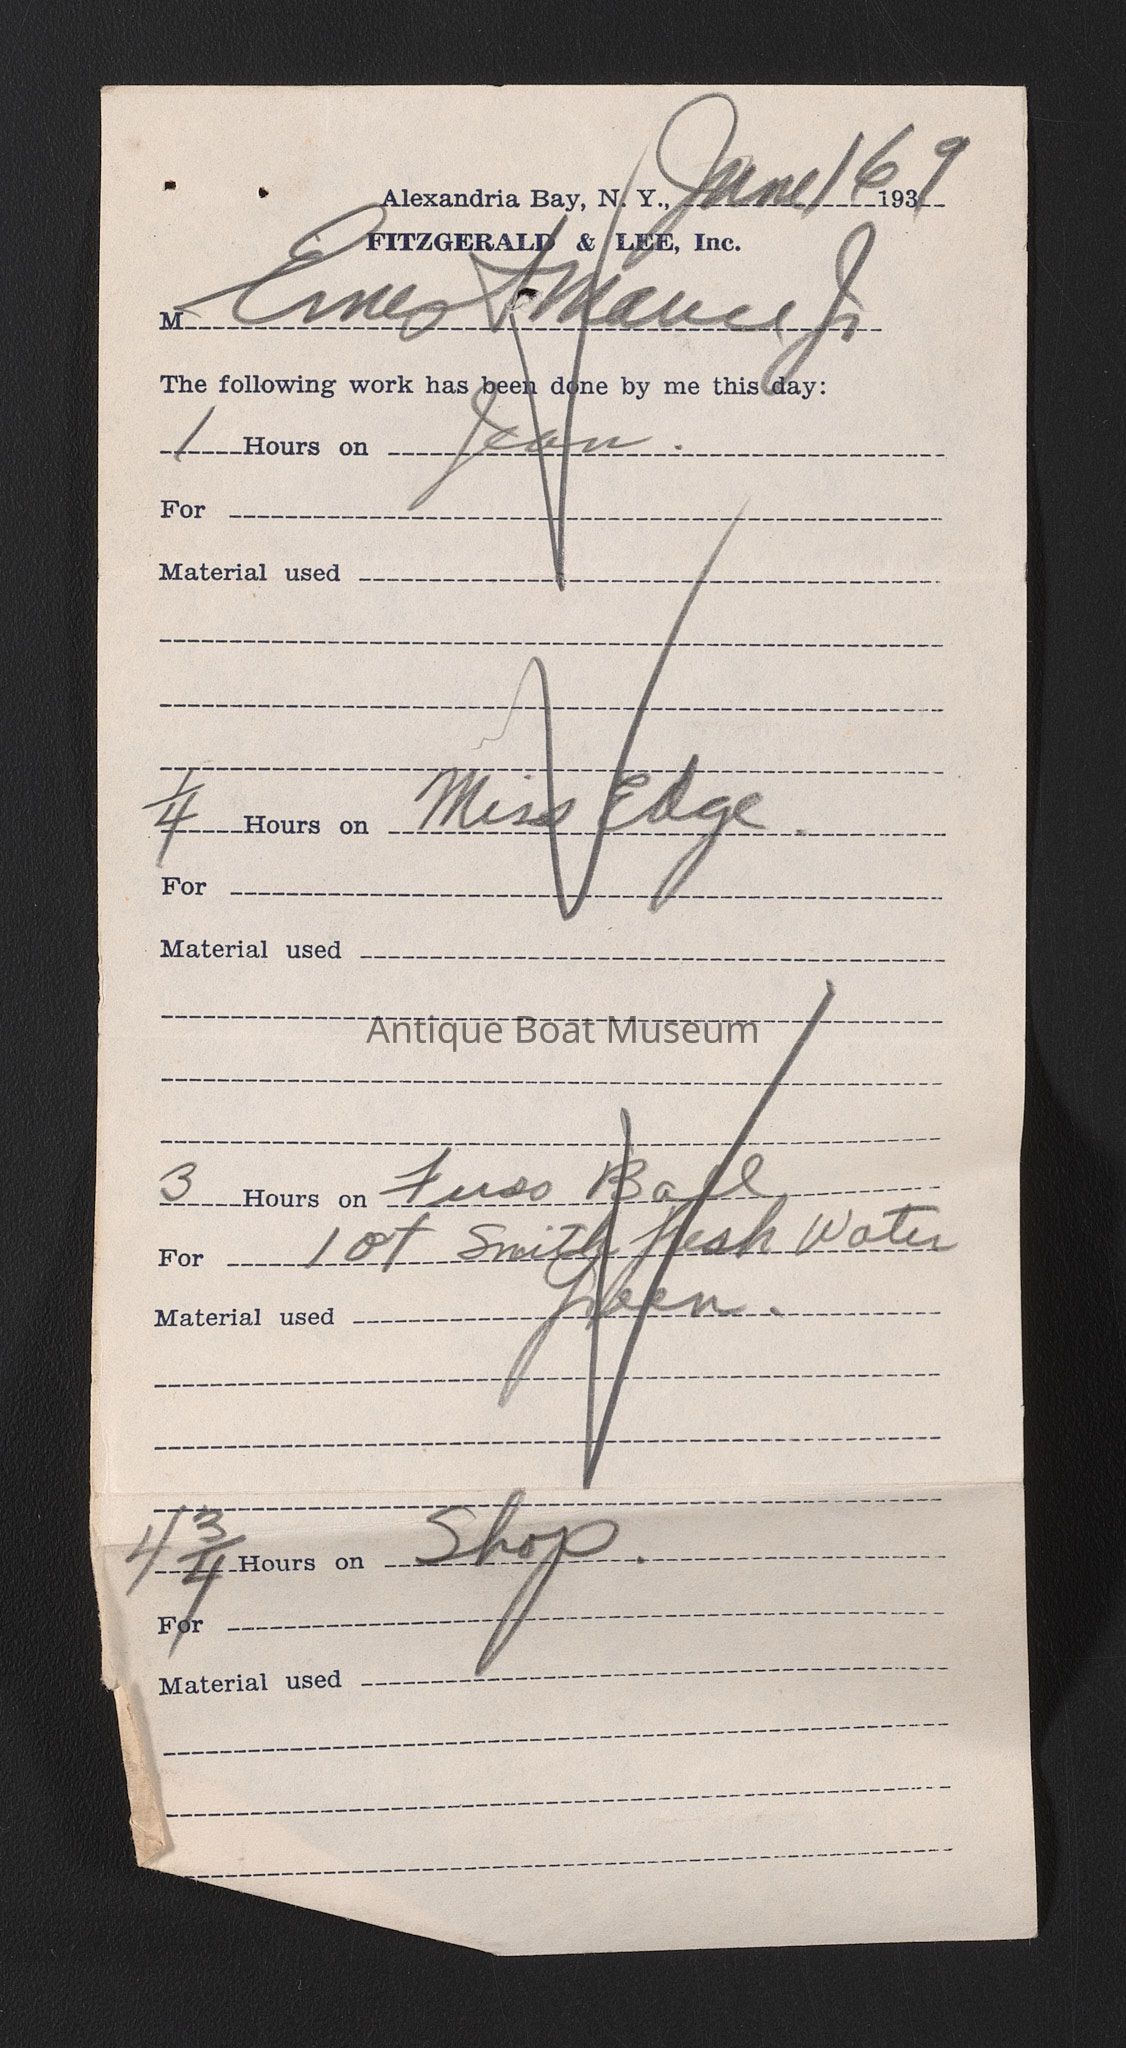 Alexandria Bay, N. Y., June 16 1939
FITZGERALD & LEE, Inc.
M Ernest Mance Jr
The following work has been done by me this day:
1 Hours on Jean.
For
Material used
1/4 Hours on Miss Edge.
For
Material used
Antique Boat Museum
3 Hours on Fuso Ball
For 1 Qt Smith fresh Water
Material used Green.
4 3/4 Hours on Shop.
For
Material used